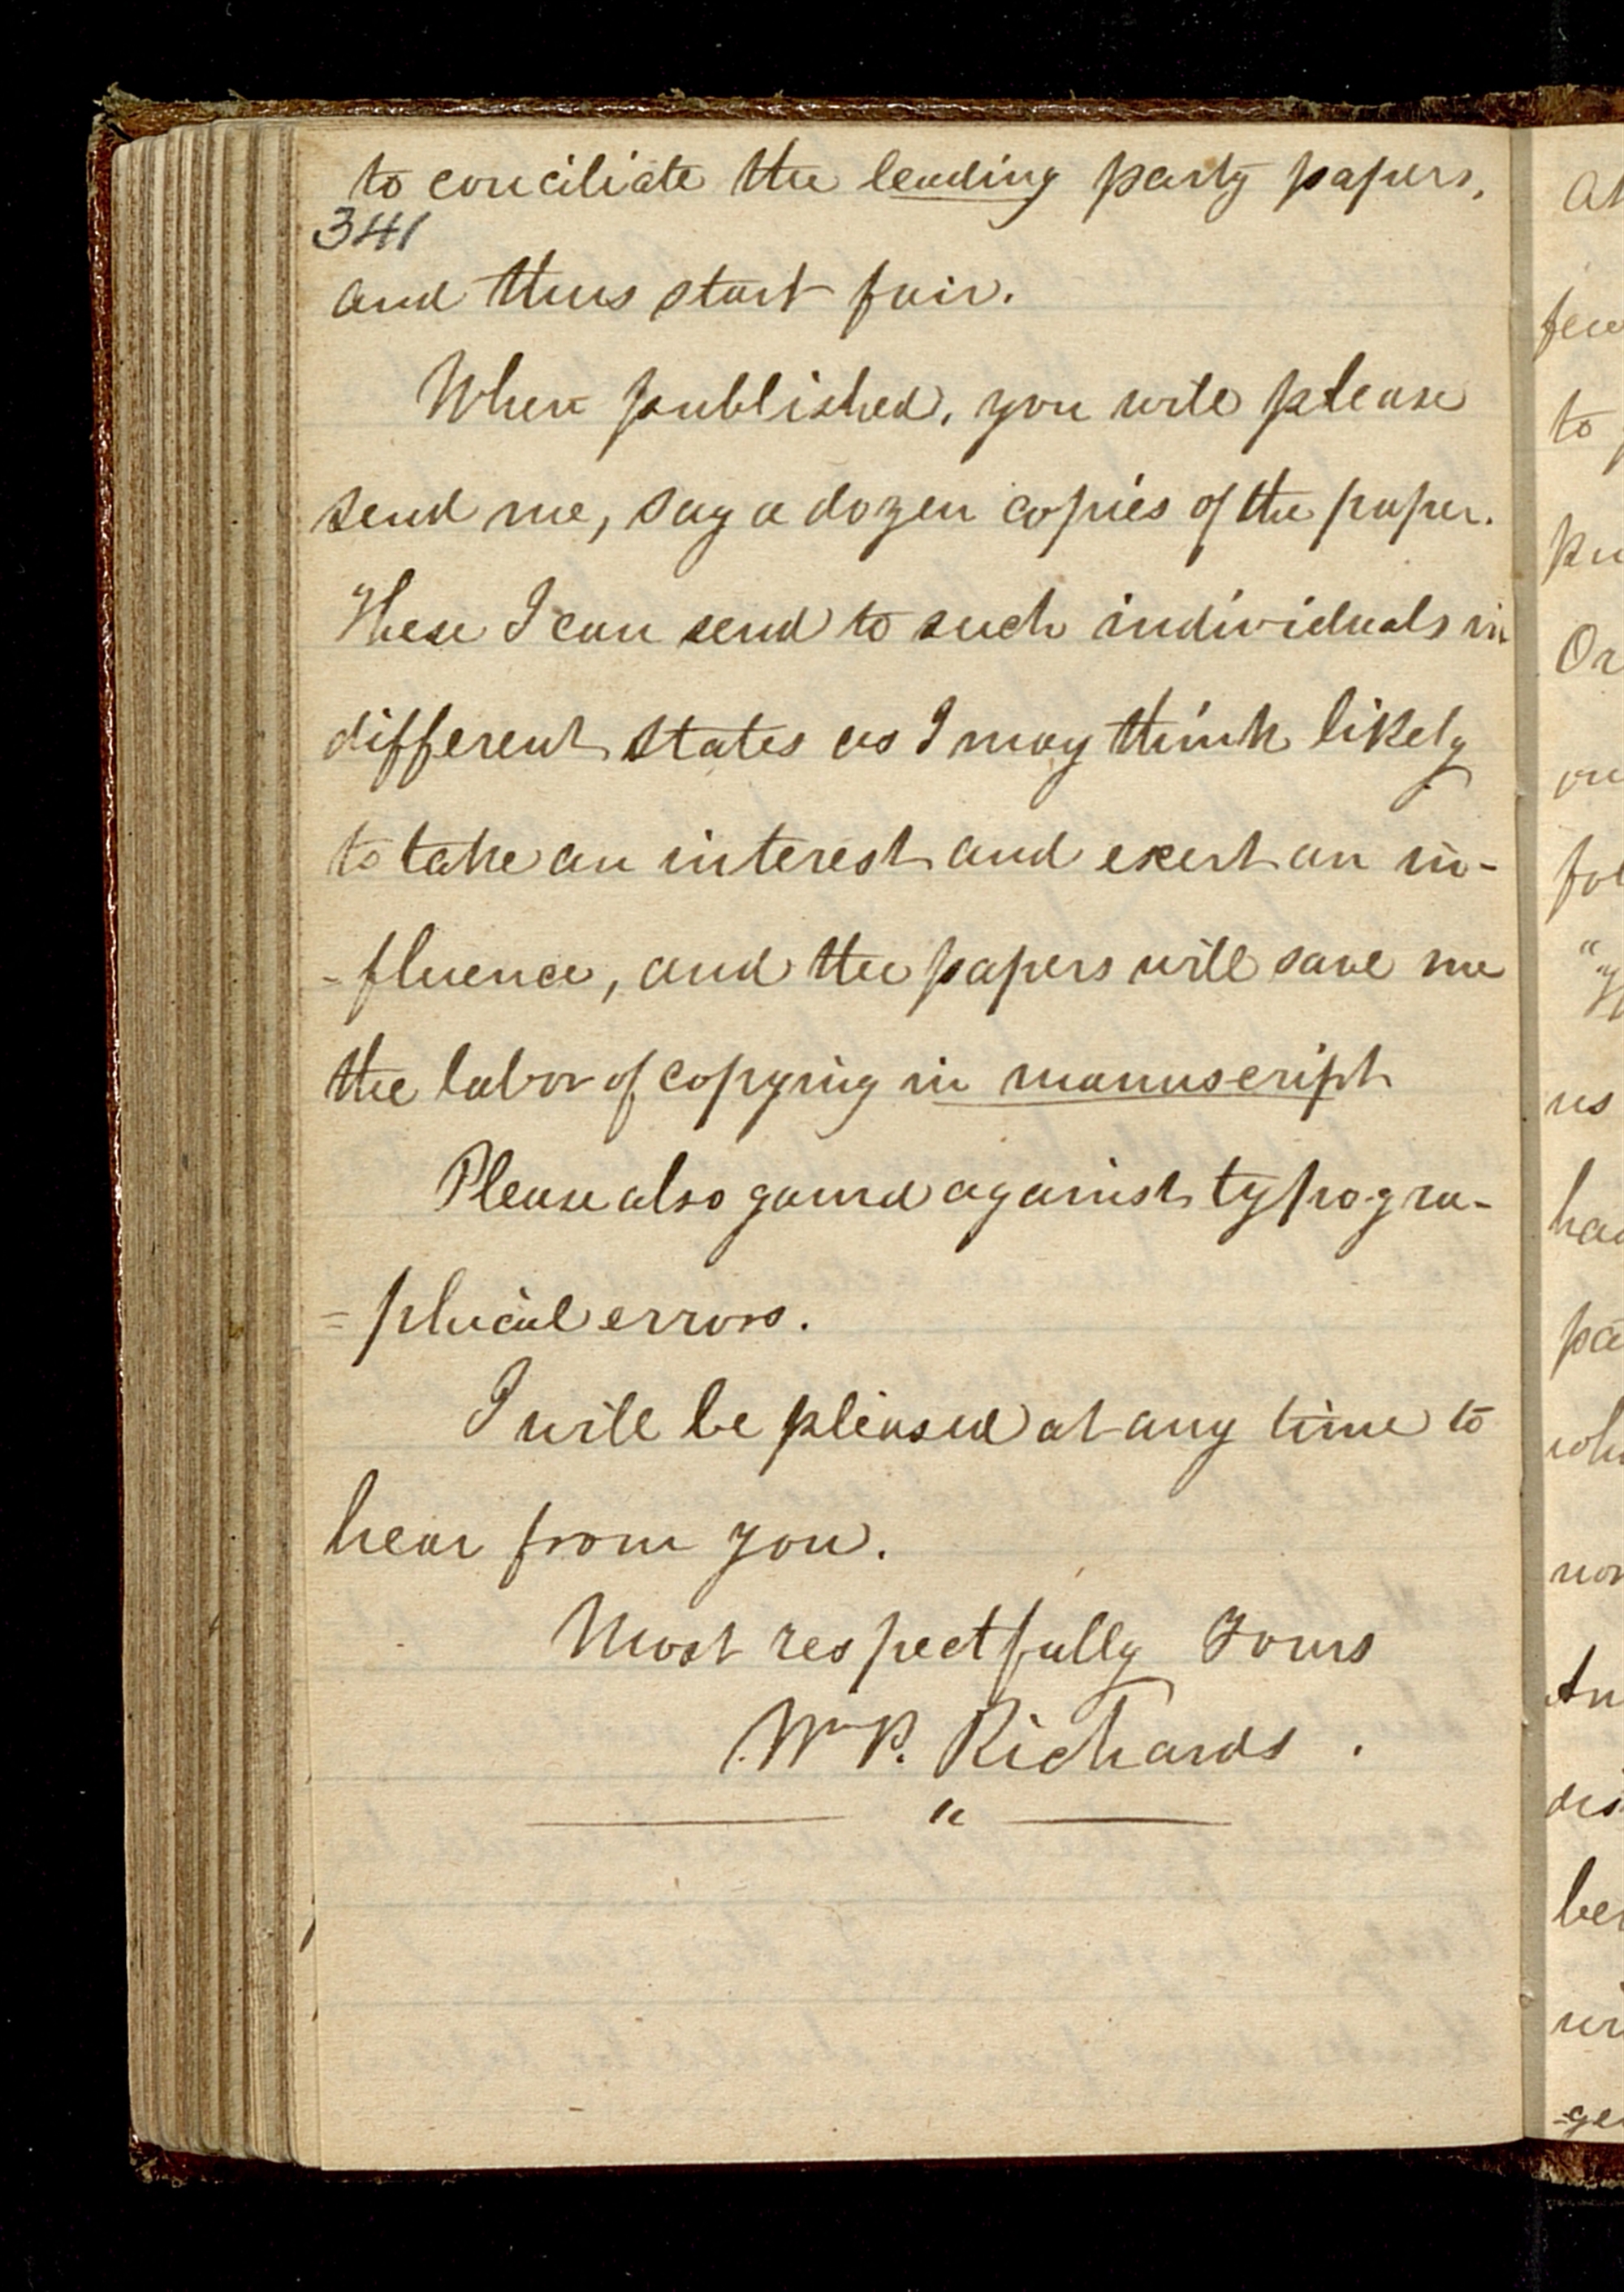 to conciliate the leading party papers,
341
and thus start fair.
When published, you will please
send me, say a dozen copies of the paper.
These I can send to such individuals in
different states as I may think likely
to take an interest and exert an in-
-fluence, and the papers will save me
the labor of copying in manuscript
Please also guard against typogra-
=phical errors.
I will be pleased at any time to
hear from you.
Most respectfully Yours
Wm P. Richards.
"
few
to
Or
us